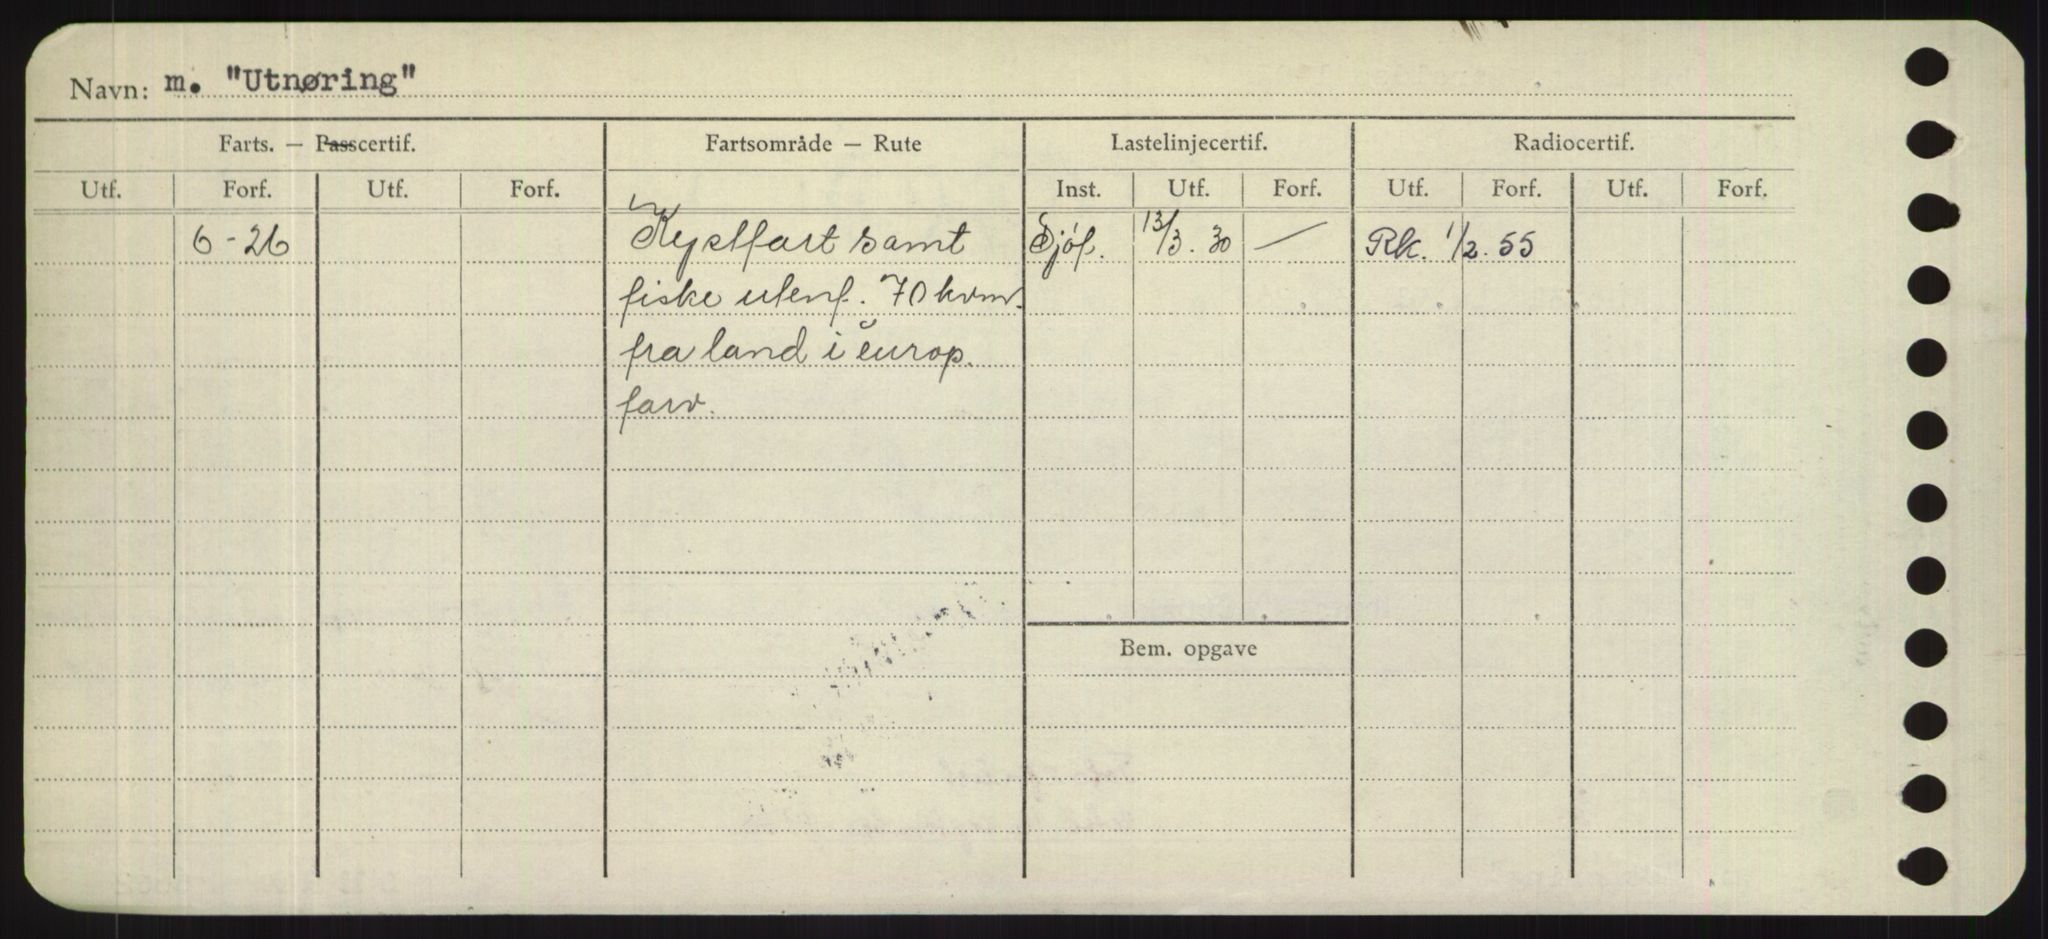 Navn: m. "Utnøring"
Farts. — Passcertif. Fartsområde — Rute Lastelinjecertif. Radiocertif.
Utf. Forf. Utf. Forf. Inst. Utf. Forf. Utf. Forf. Utf. Forf.
6-26 Kystfart samt Sjóf. 13/3.30 — Rk. 1/2.55
fiske utenf. 70 kvm.
fra land i europ.
farv.
Bem. opgave